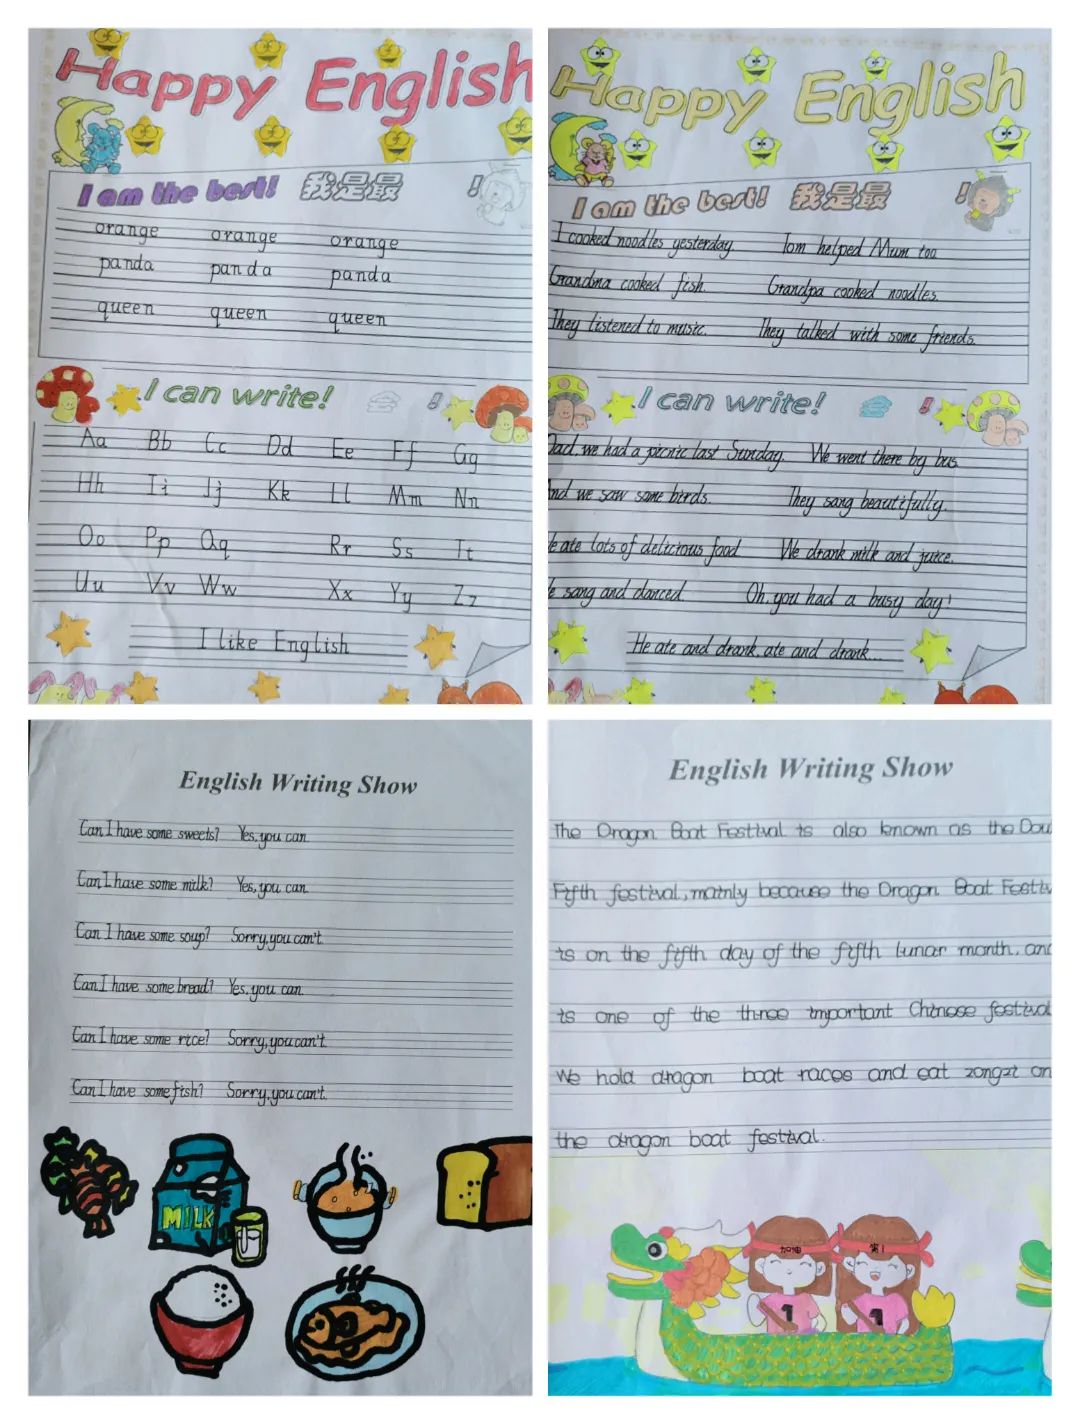 Happy English
I am the best! 我是最 !
orange orange orange
panda panda panda
queen queen queen
I can write! !
Aa Bb Cc Dd Ee Ff Gg
Hh Ii Jj Kk Ll Mm Nn
Oo Pp Qq Rr Ss Tt
Uu Vv Ww Xx Yy Zz
I like English
Happy English
I am the best! 我是最 !
I cooked noodles yesterday. Tom helped Mum too
Grandma cooked fish. Grandpa cooked noodles.
They listened to music. They talked with some friends.
I can write! !
Dad, we had a picnic last Sunday. We went there by bus.
And we saw some birds. They sang beautifully.
e ate lots of delicious food We drank milk and juice.
e sang and danced. Oh, you had a busy day!
He ate and drank, ate and drank...
English Writing Show
Can I have some sweets? Yes, you can.
Can I have some milk? Yes, you can.
Can I have some soup? Sorry, you can't.
Can I have some bread? Yes, you can.
Can I have some rice? Sorry, you can't.
Can I have some fish? Sorry, you can't.
MILK
English Writing Show
The Dragon Boat Festival is also known as the Dou
Fifth festival, mainly because the Dragon Boat Festiv
is on the fifth day of the fifth lunar month, and
is one of the three important Chinese festival
We hold dragon boat races and eat zongzi on
the dragon boat festival.
加油 第1
1 1